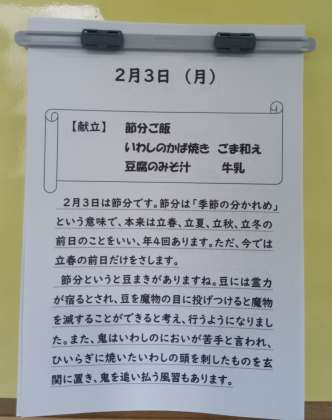 2月3日（月）
【献立】 節分ご飯
いわしのかば焼き ごま和え
豆腐のみそ汁 牛乳
2月3日は節分です。節分は「季節の分かれめ」
という意味で、本来は立春、立夏、立秋、立冬の
前日のことをいい、年4回あります。ただ、今では
立春の前日だけをさします。
節分というと豆まきがありますね。豆には霊力
が宿るとされ、豆を魔物の目に投げつけると魔物
を滅することができると考え、行うようになりまし
た。また、鬼はいわしのにおいが苦手と言われ、
ひいらぎに焼いたいわしの頭を刺したものを玄
関に置き、鬼を追い払う風習もあります。